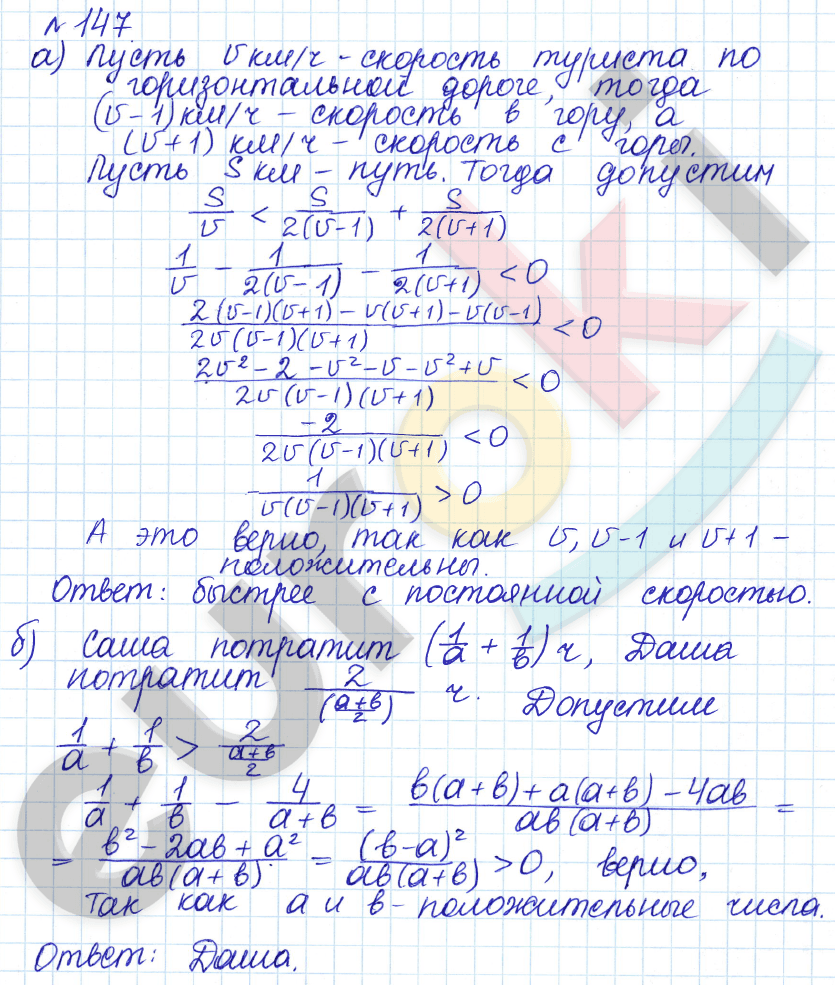 № 147
а) Пусть v км/ч - скорость туриста по
горизонтальной дороге, тогда
(v-1) км/ч - скорость в гору, а
(v+1) км/ч - скорость с горы.
Пусть S км - путь. Тогда допустим
S/v < S/2(v-1) + S/2(v+1)
1/v - 1/2(v-1) - 1/2(v+1) < 0
2(v-1)(v+1) - v(v+1) - v(v-1) / 2v(v-1)(v+1) < 0
2v² - 2 - v² - v - v² + v / 2v(v-1)(v+1) < 0
-2 / 2v(v-1)(v+1) < 0
1 / v(v-1)(v+1) > 0
А это верно, так как v, v-1 и v+1 -
положительны.
Ответ: быстрее с постоянной скоростью.
б) Саша потратит (1/a + 1/b) ч, Даша
потратит 2/((a+b)/2) ч. Допустим
1/a + 1/b > 2/((a+b)/2)
1/a + 1/b - 4/(a+b) = b(a+b) + a(a+b) - 4ab / ab(a+b) =
= b² - 2ab + a² / ab(a+b) = (b-a)² / ab(a+b) > 0, верно,
так как a и b - положительные числа.
Ответ: Даша.
euroki